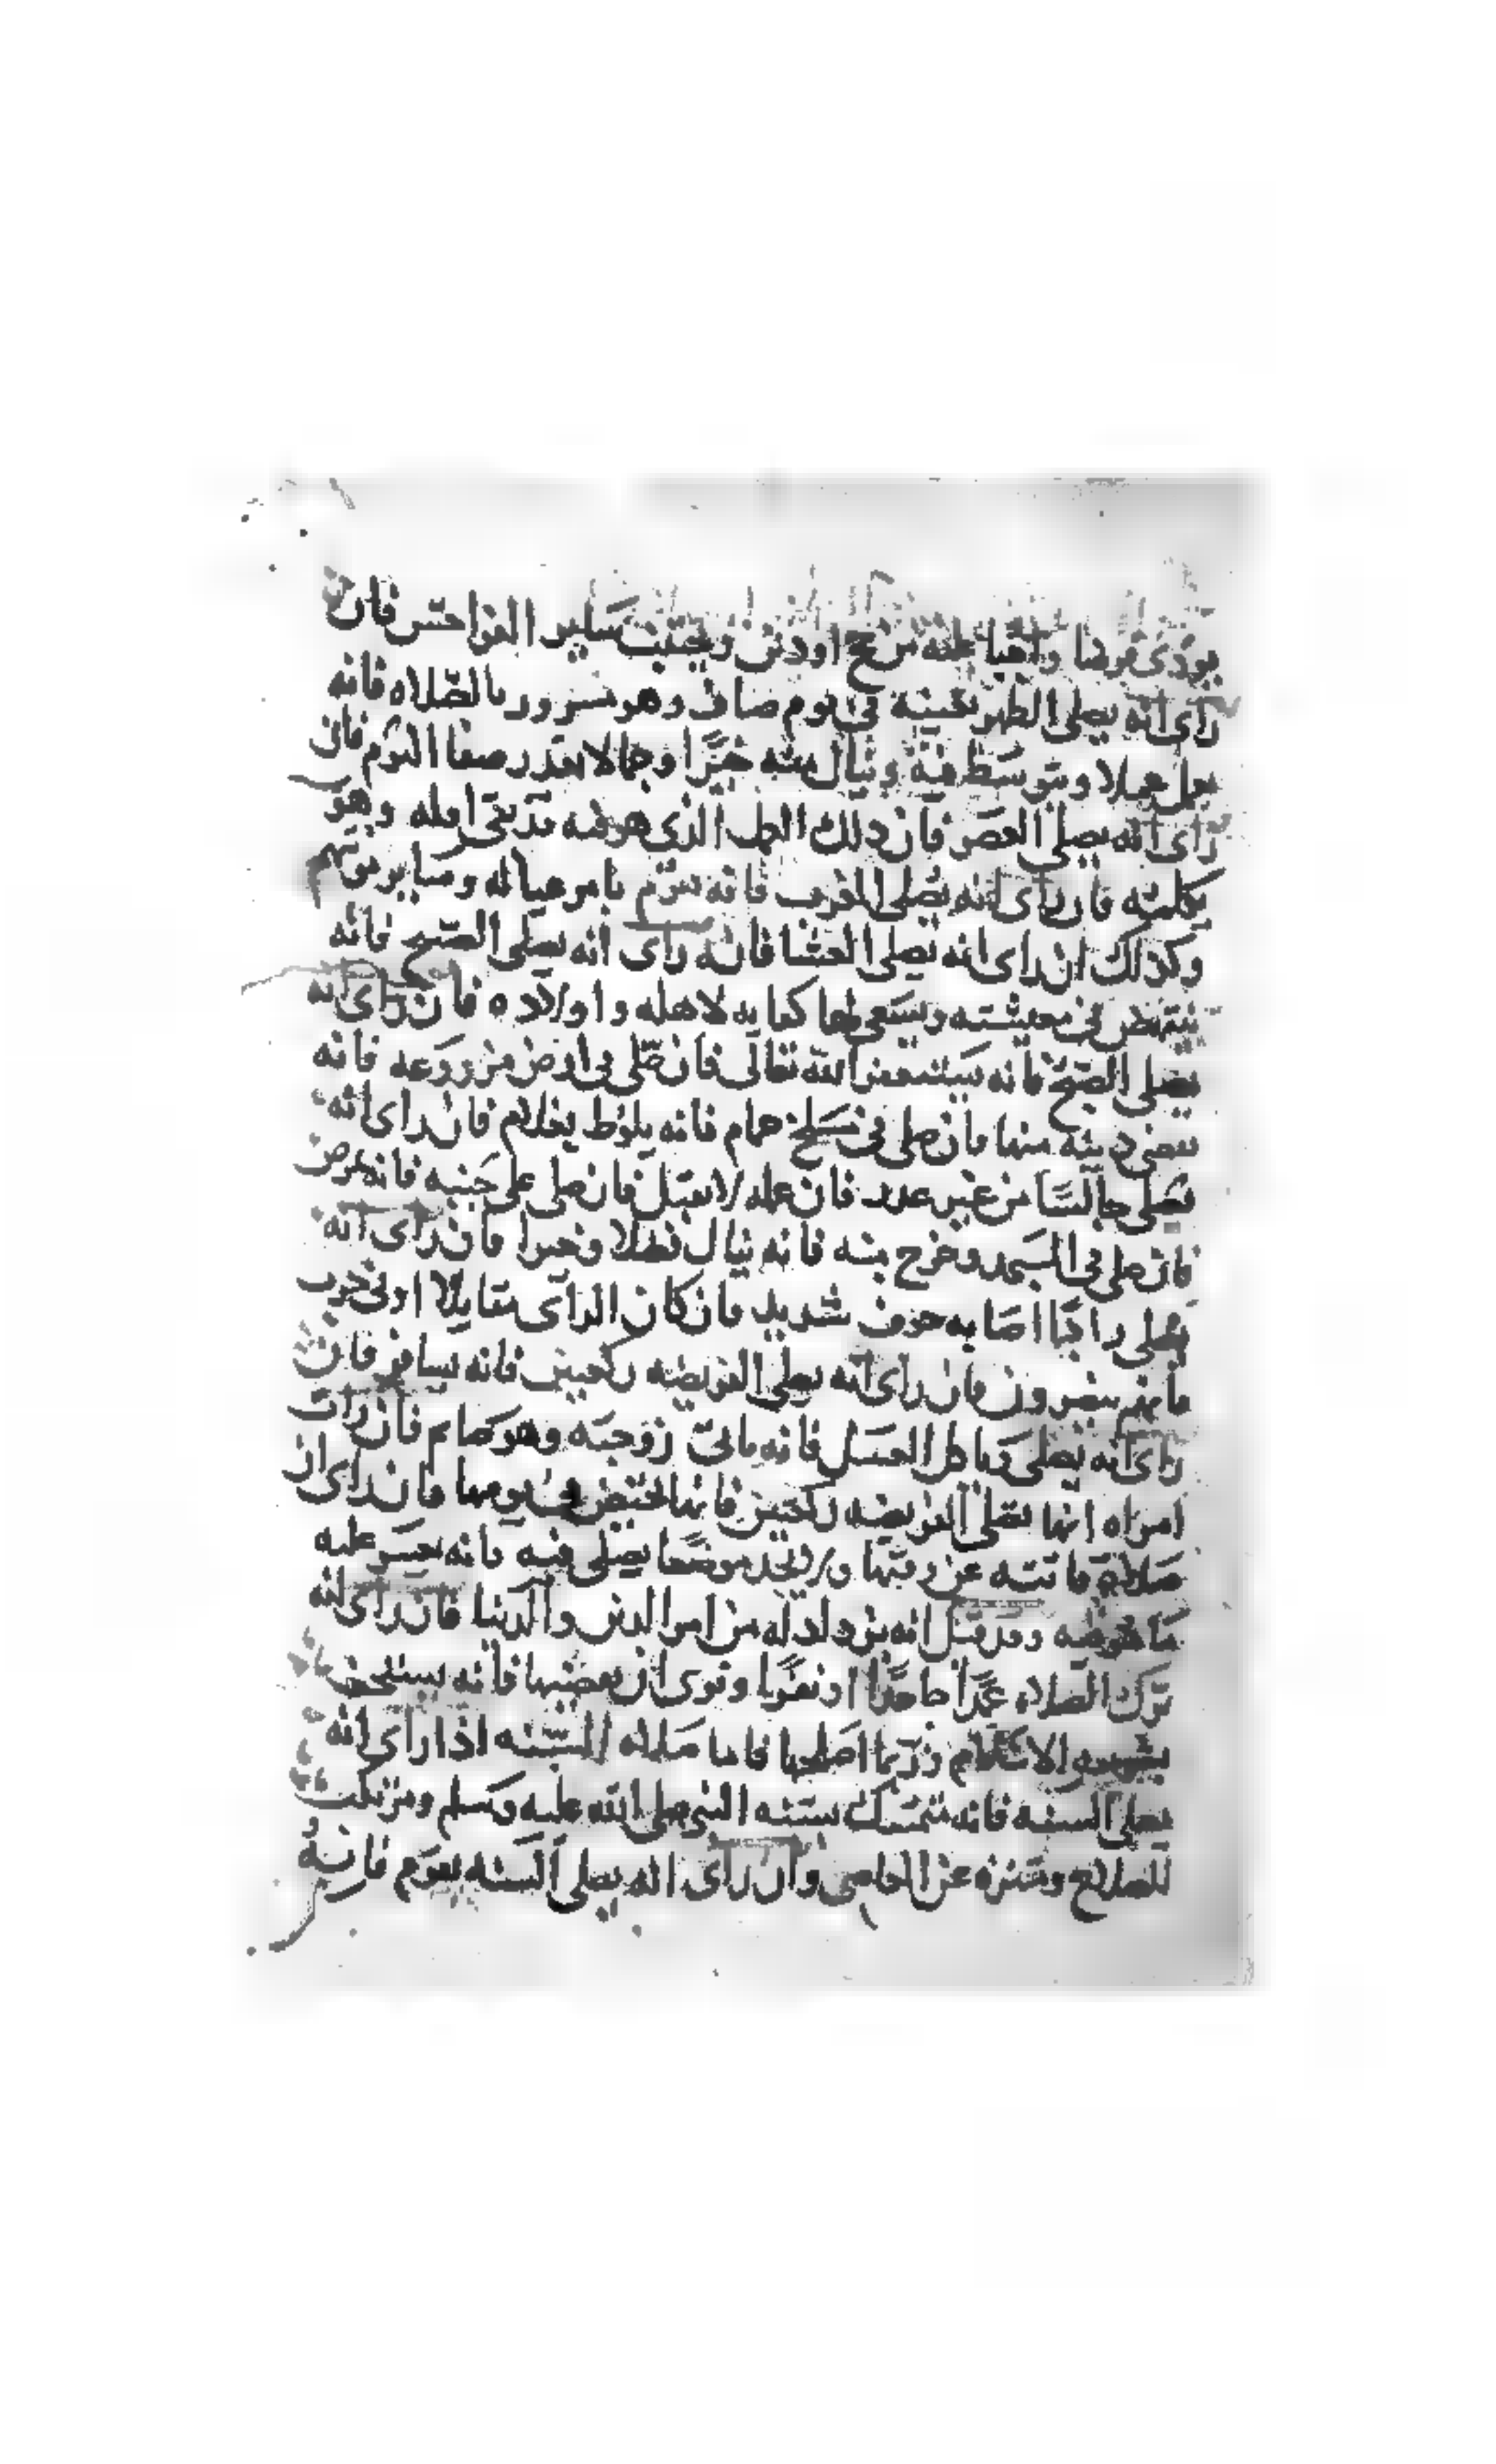 يودى فرضا واجبا عليه من حج او دين ويجتنب ساير الفواحش فان
رأى انه يصلى الظهر بعينه فى يوم صاف وهو مسرور بالصلاه فانه
يعمل عملا ويتوسط فيه وينال منه خيرا وجمالا بقدر صفا اليوم فان
رأى انه يصلى العصر فان ذلك الذى هو فيه قد بقى اوله وهو
يكلمه فان رأى انه يصلى المغرب فانه يقوم بامر عياله وما يريبهم
وكذلك ان راى انه يصلى العشا فان رأى انه يصلى الصبح فانه
ينتهض فى معيشته ويسعى لها كفايه لاهله واولاده فان رأى انه
يصلى الصبح فانه الله تعالى فان صلى فى ارض مزروعه فانه
يقضى دينه منها فان صلى فى مسلخ حمام فانه يلوط بغلام فان راى انه
يصلى جالسا من غير عذر فان عمله لا يقبل فان صلى على جنبه فانه يمرض
فان صلى فى المسجد وخرج منه فانه ينال فضلا وخيرا فان راى انه
يصلى راكبا اصابه خوف شديد فان كان الرآى مقاتلا او فى حرب
فانهم ينصرون فان رأى انه يصلى الفريضه ركعتين فانه يسافر فان
راى انه يصلى وياكل العسل فانه ياتى زوجته وهو صايم فان رات
امراه انها تصلى الفريضه ركعتين فانها تحيض فى يومها فان راى ان
صلاته فاتته عن وقتها ولا يجد موضعا يصلى فيه فانه يعسر عليه
ما هو فيه وقد قيل انه يزداد له من امر الدين والدنيا فان راى انه
ترك الصلاه عمدا جاحدا ونوى ان يقضيها فانه يستخف
الاسلام وربما اصلحها فاما صلاه السنه اذا رأى انه
يصلى السنه فانه يتمسك بسنه النبى صلى الله عليه وسلم
للصلاح ويتنزه عن المعاصى وان رأى انه يصلى السنه بقوم فانه